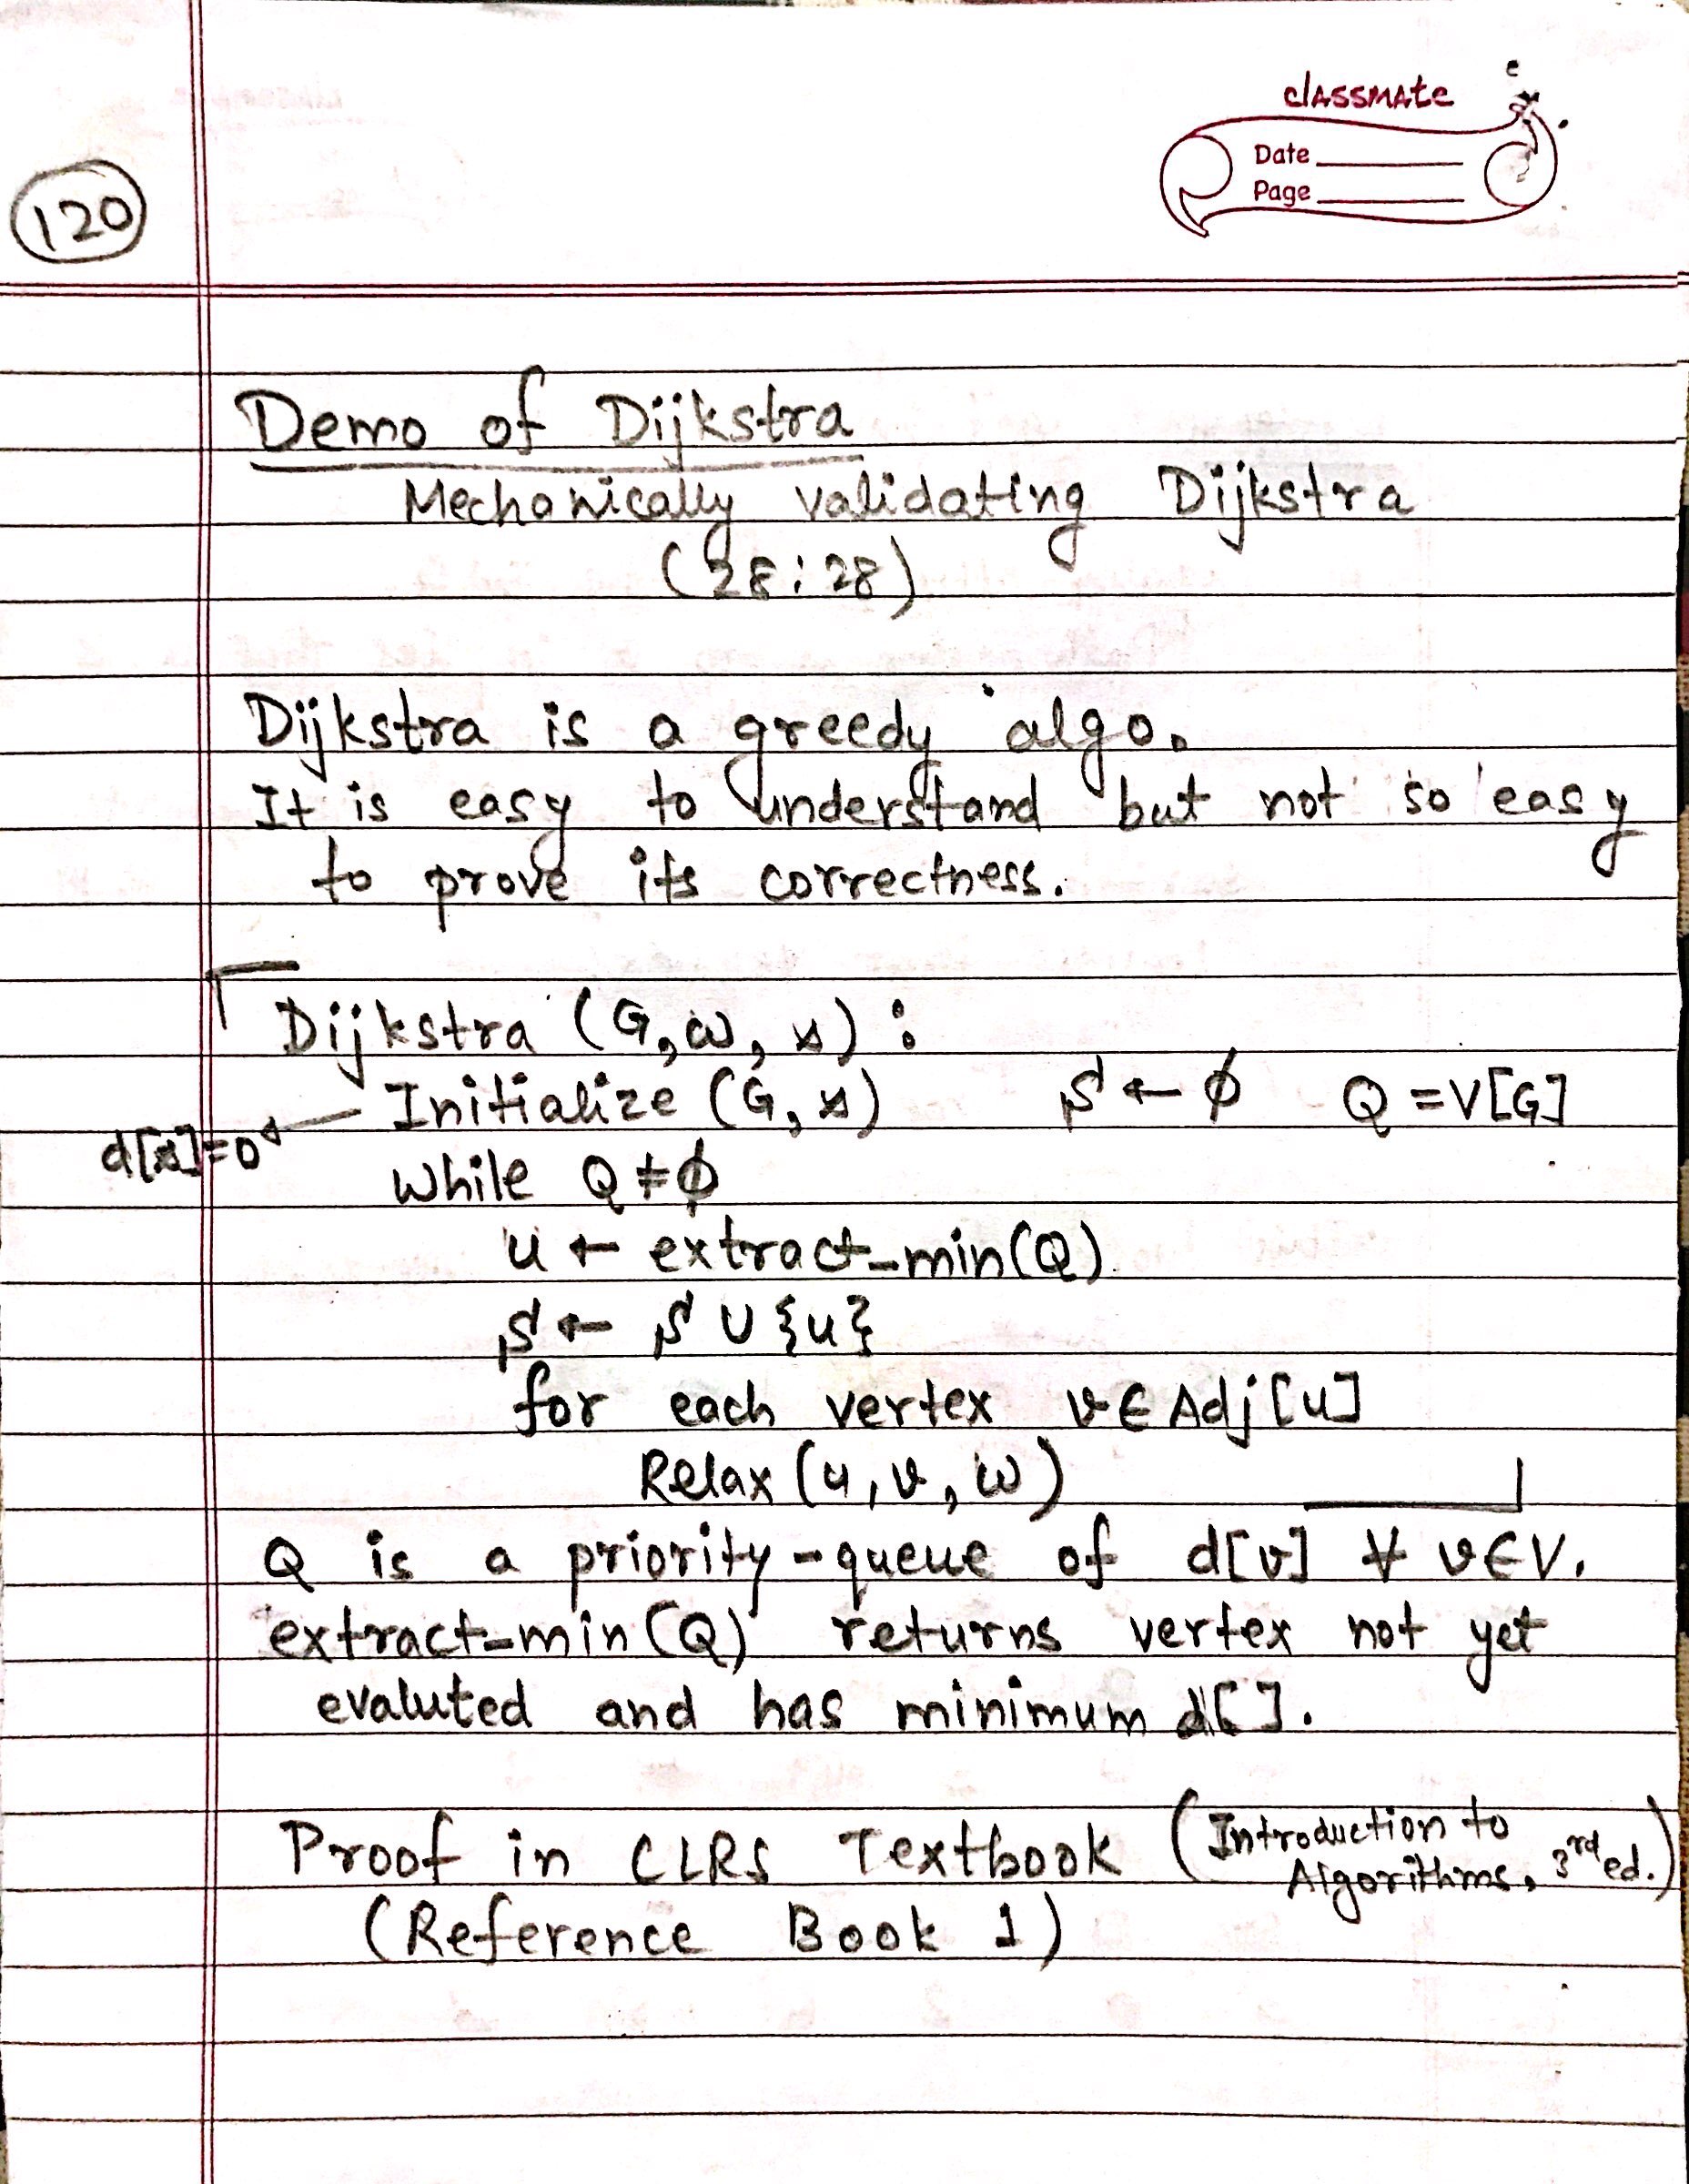 classmate
Date
Page
120
Demo of Dijkstra
Mechanically validating Dijkstra
(28:28)
Dijkstra is a greedy algo.
It is easy to understand but not so easy
to prove its correctness.
Dijkstra (G, w, s) :
Initialize (G, s) S ← ϕ Q = V[G]
d[s]=0
while Q ≠ ϕ
u ← extract_min(Q)
S ← S ∪ {u}
for each vertex v ∈ Adj[u]
Relax (u, v, w)
Q is a priority-queue of d[v] ∀ v∈V.
extract_min(Q) returns vertex not yet
evaluted and has minimum d[ ].
Proof in CLRS Textbook (Introduction to
Algorithms, 3rd ed.)
(Reference Book 1)